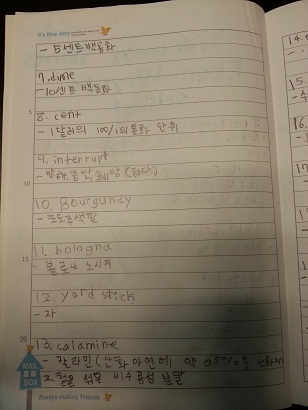 It's fine day
- 5센트 백동화
7. dime
- 10센트 백동화
8. cent
- 1달러의 100/1의 통화 단위
9. interrupt
- 방해, 중단, 훼방 (하다)
10. Bourgundy
- 포도주색필
11. bologna
- 볼로냐 소시지
12. yard stick
- 자
13. calamine
- 칼라민 (산화아연에 약 0.5%를 산화
제2철을 섞은 비수용성 분말
5
10
15
20
MAIL
BOX
Always making Friends
14.
15.
16
17